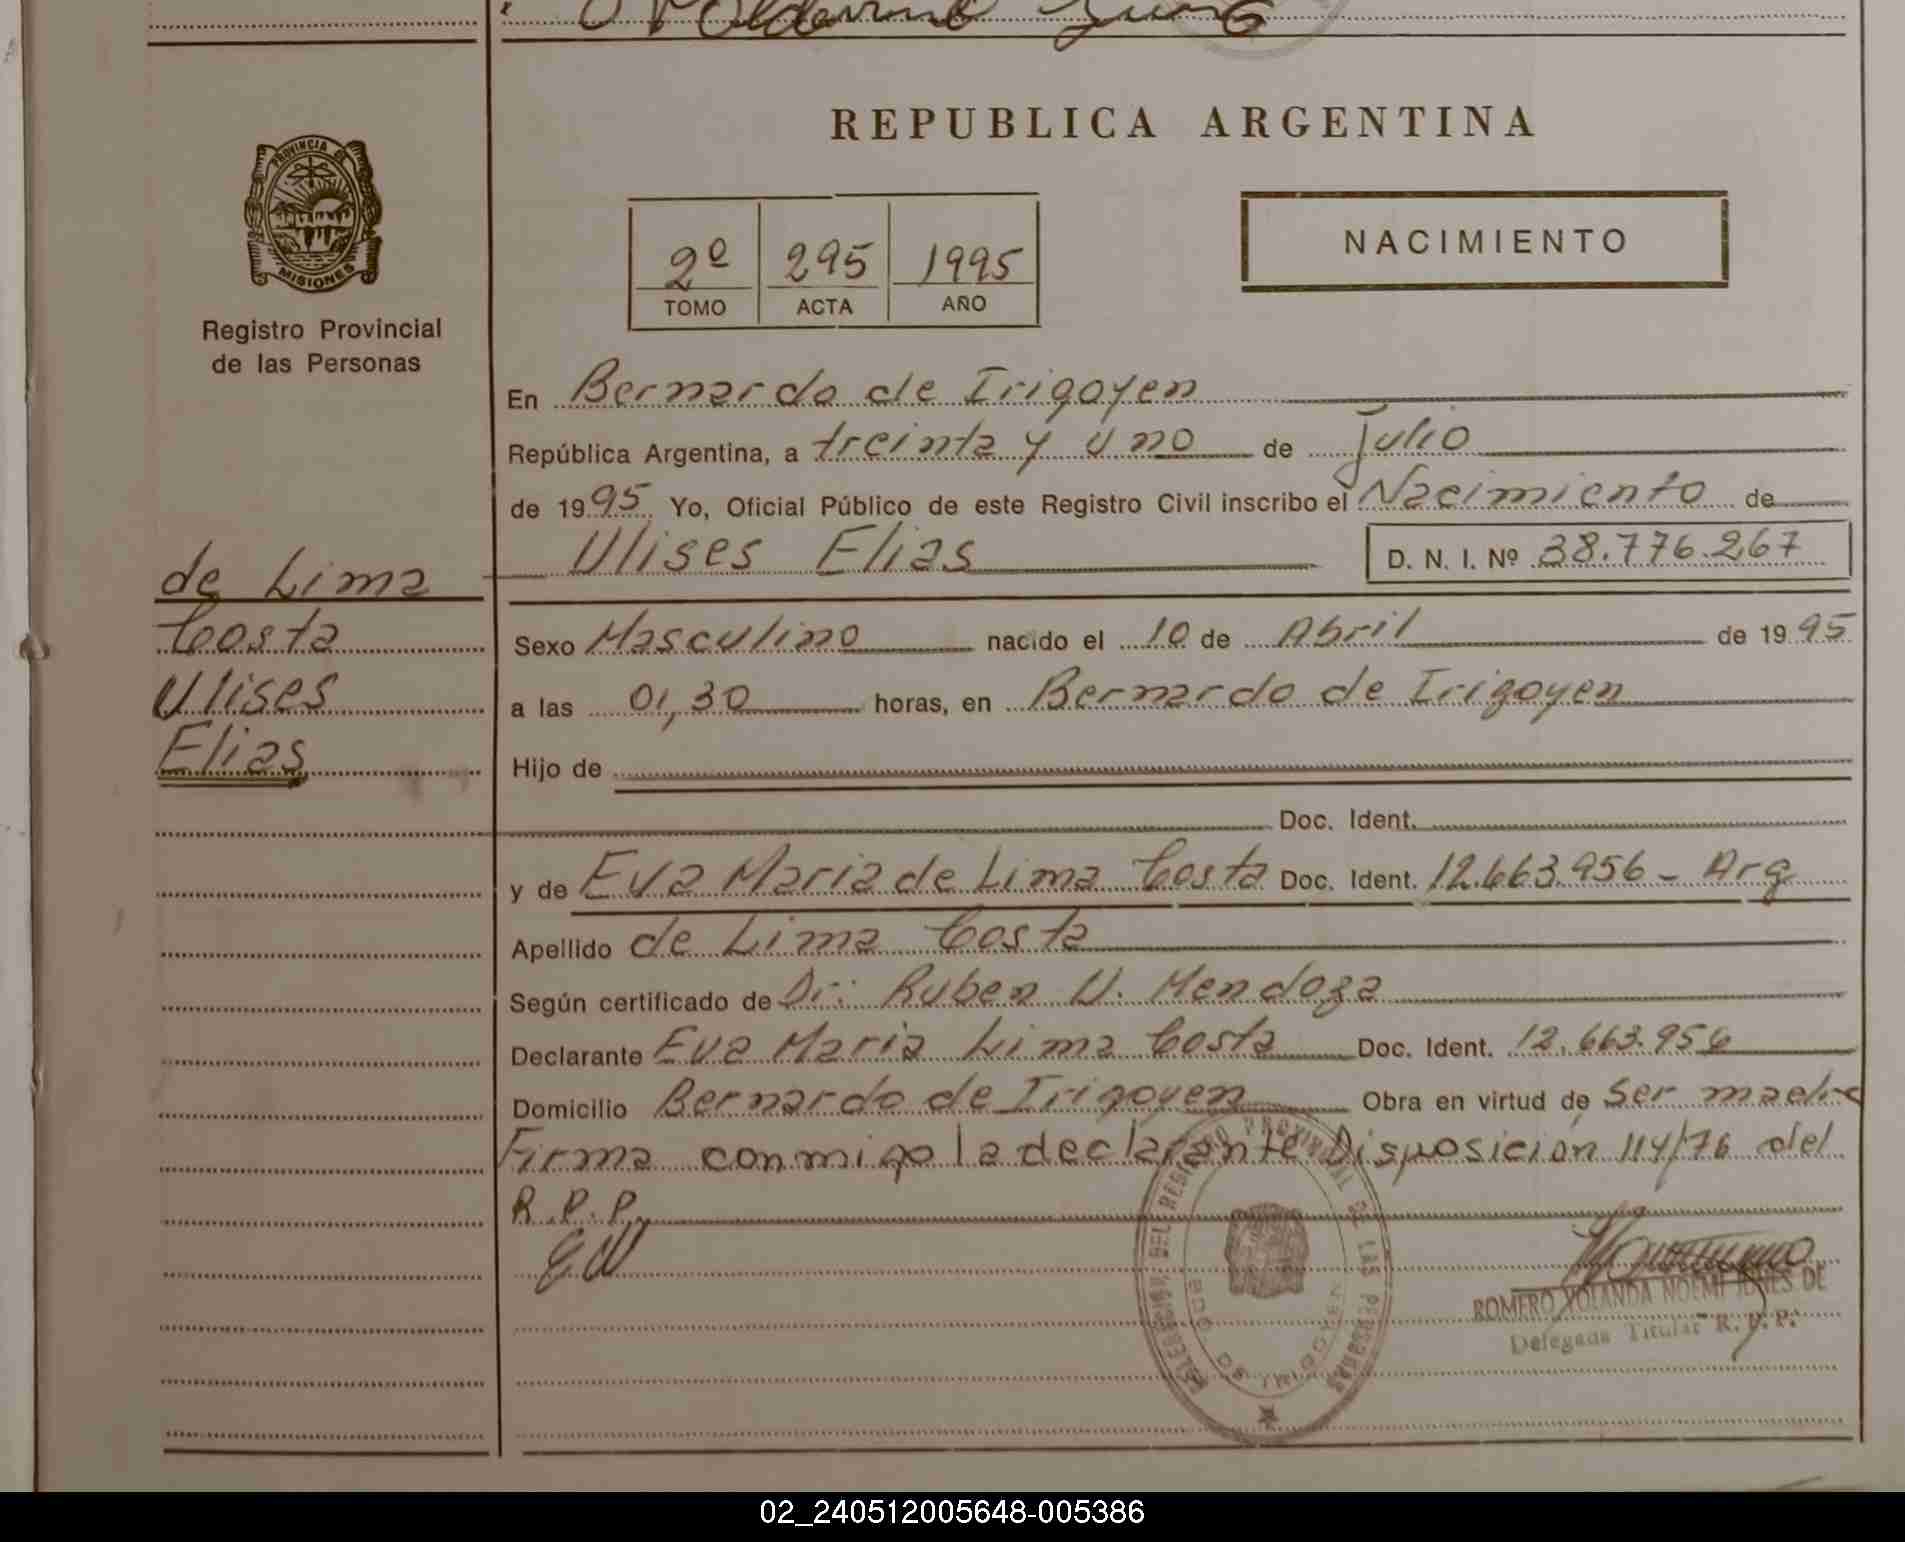 REPUBLICA ARGENTINA
PROVINCIA DE
MISIONES
Registro Provincial
de las Personas
2º 295 1995
TOMO ACTA AÑO
NACIMIENTO
En Bernardo de Irigoyen
República Argentina, a treinta y uno de Julio
de 1995 Yo, Oficial Público de este Registro Civil inscribo el Nacimiento de
Ulises Elias D. N. I. Nº 38.776.267
de Lima
Costa
Ulises
Elias
Sexo Masculino nacido el 10 de Abril de 1995
a las 01,30 horas, en Bernardo de Irigoyen
Hijo de
Doc. Ident.
y de Eva Maria de Lima Costa Doc. Ident. 12.663.956 - Arg
Apellido de Lima Costa
Según certificado de Dr: Ruben U. Mendoza
Declarante Eva Maria Lima Costa Doc. Ident. 12.663.956
Domicilio Bernardo de Irigoyen Obra en virtud de ser madre
Firma conmigo la declarante Disposición 114/76 del
R.P.P.
DELEGACION DEL REGISTRO PROVINCIAL DE LAS PERSONAS
BDO DE IRIGOYEN
ROMERO YOLANDA NOEMI JONES DE
Delegada Titular R. P. P.
02_240512005648-005386